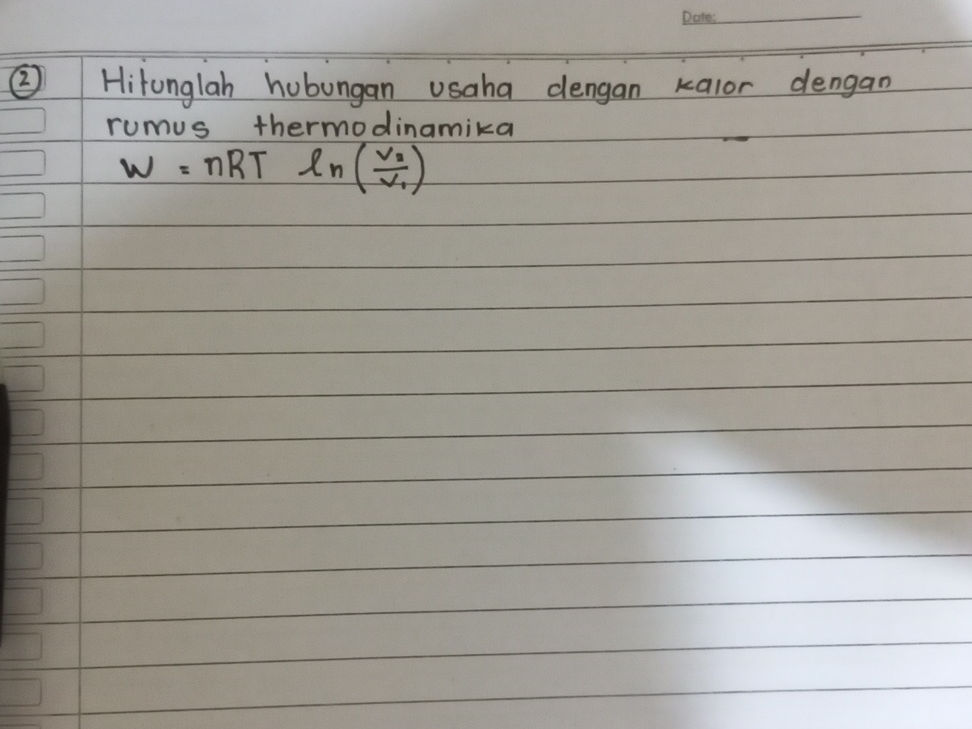 Date:
2 Hitunglah hubungan usaha dengan kalor dengan
rumus thermodinamika
W = nRT ln(V₂/V₁)